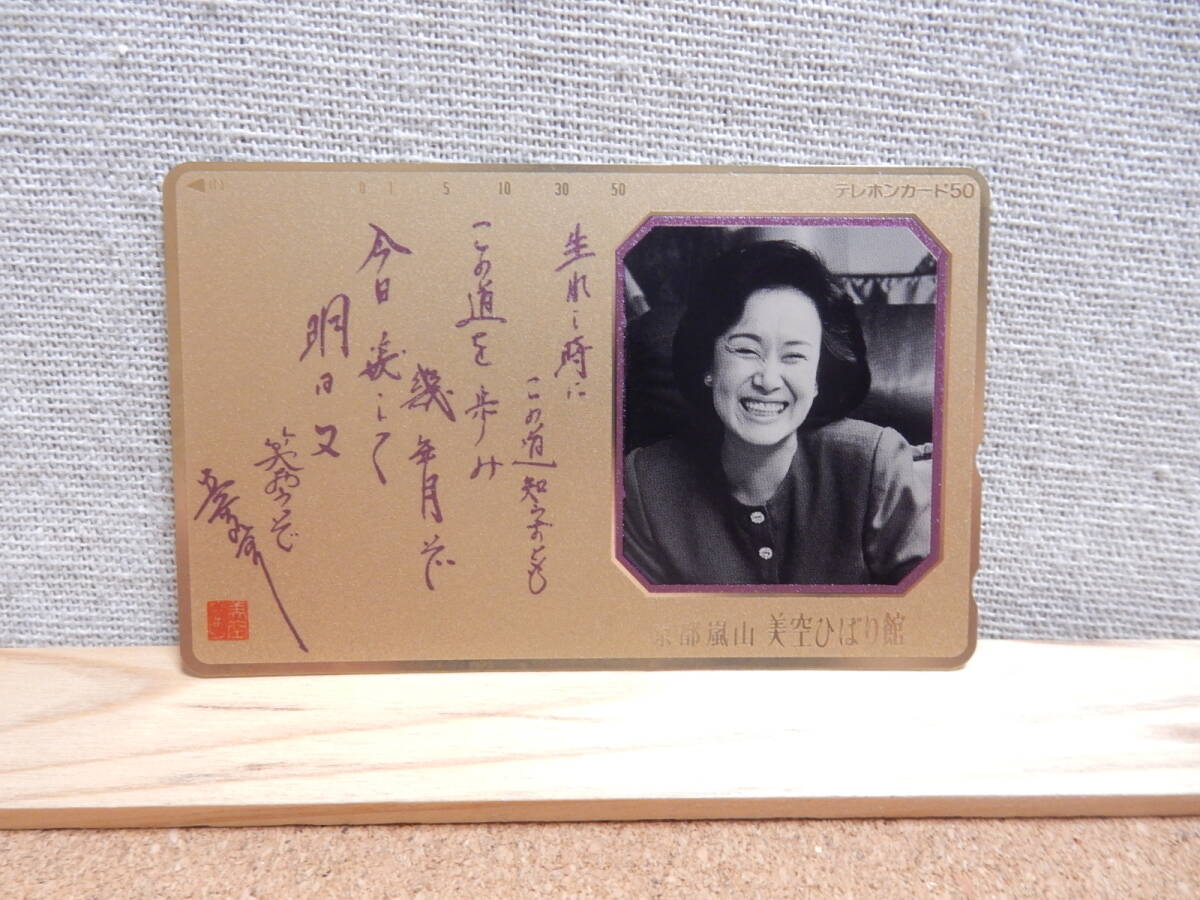 0 1 5 10 30 50
テレホンカード50
生れし時に
この道知らずとも
この道を歩み
幾年月ぞ
今日涙して
明日又
笑おうぞ
京都嵐山 美空ひばり館
美空